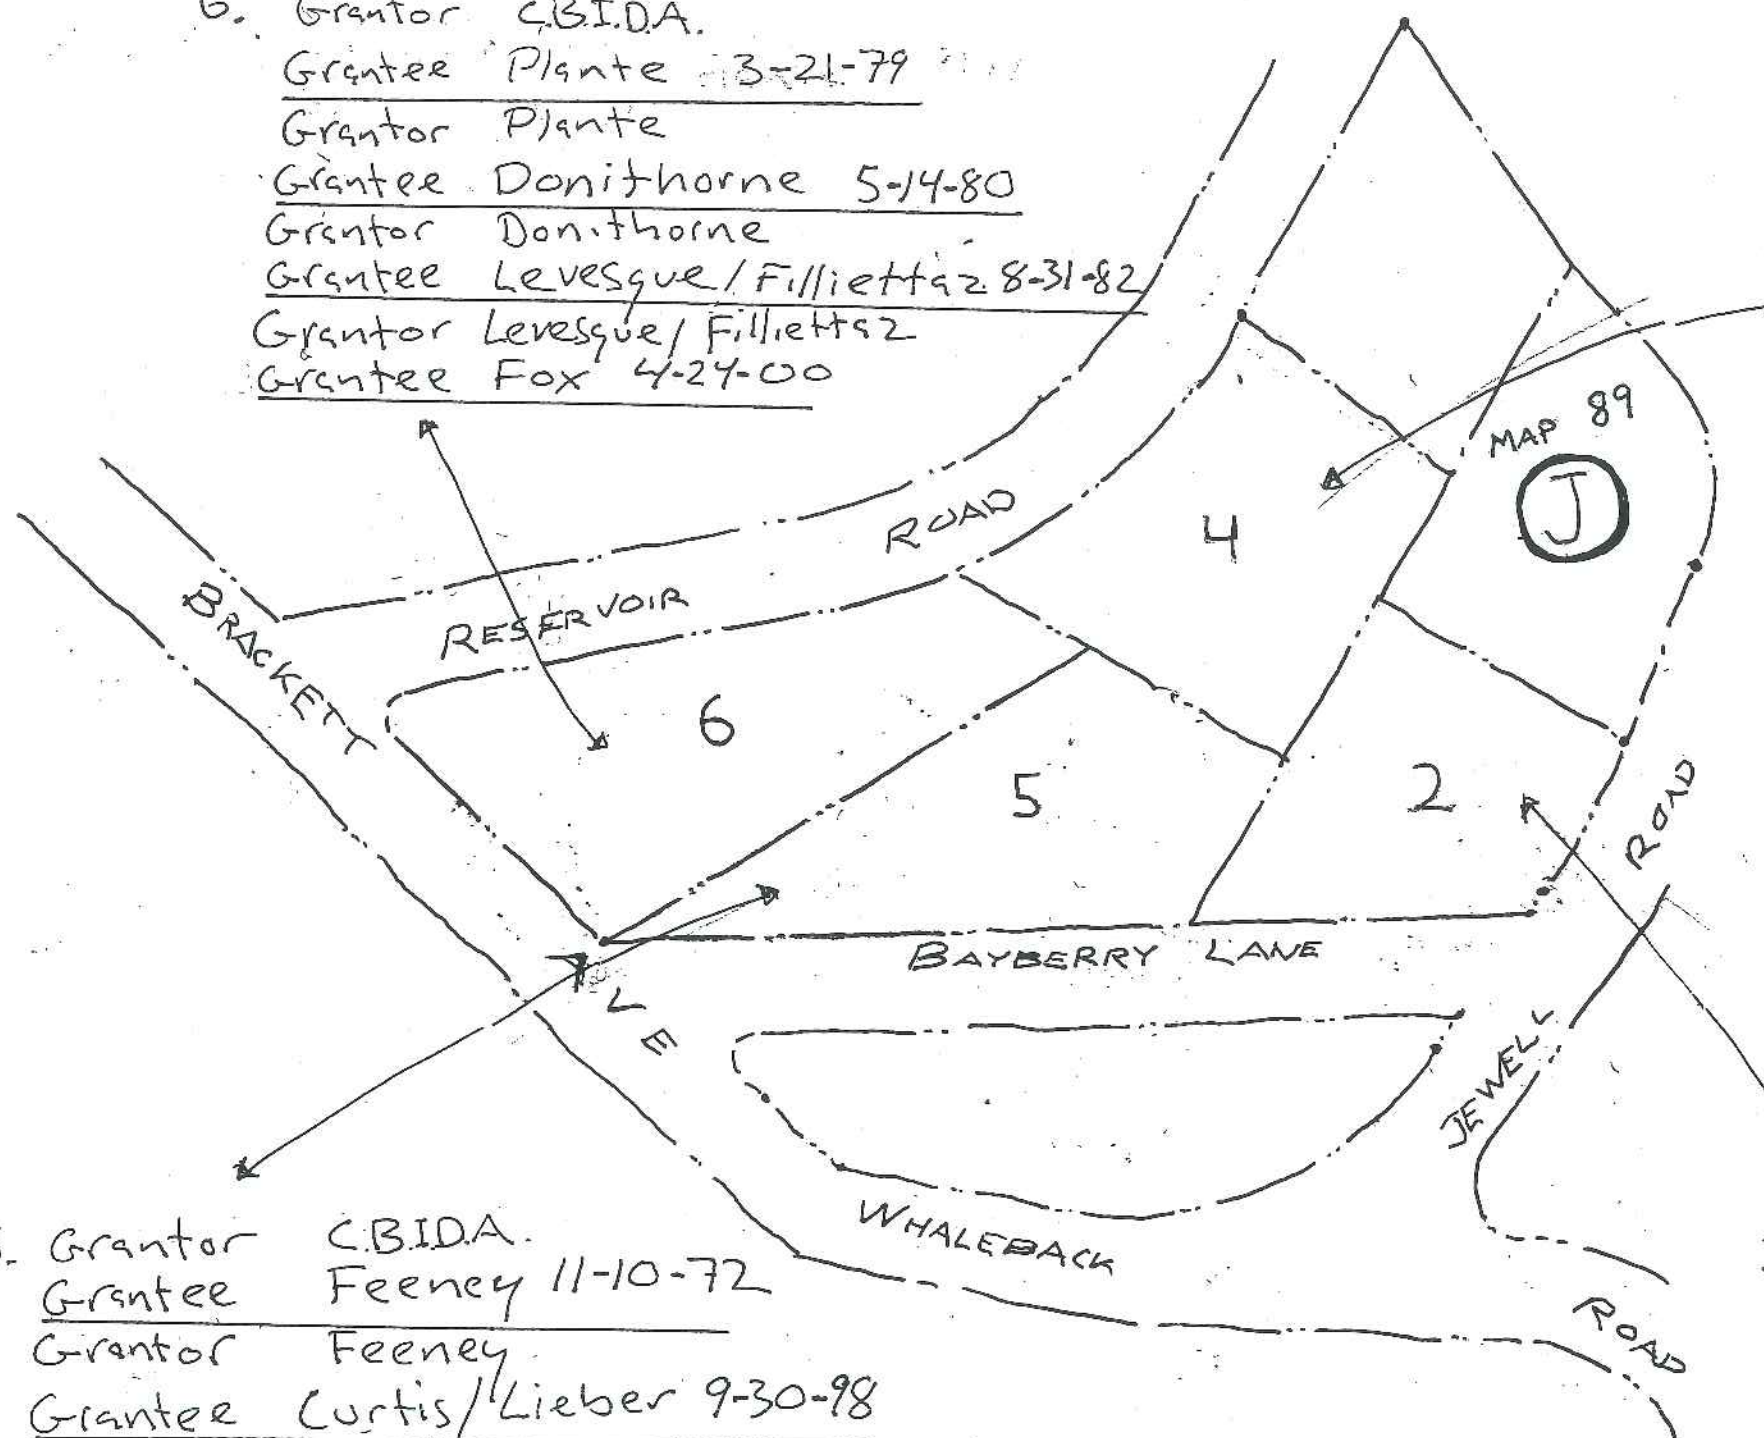 6. Grantor C.B.I.D.A.
Grantee Plante 3-21-79
Grantor Plante
Grantee Donithorne 5-14-80
Grantor Donithorne
Grantee Levesque/Fillettaz 8-31-82
Grantor Levesque/Fillettaz
Grantee Fox 4-24-00
MAP 89
J
4
RESERVOIR ROAD
BRACKETT
6
5
2
ROAD
BAYBERRY LANE
LE
JEWELL
WHALEBACK
ROAD
Grantor C.B.I.D.A.
Grantee Feeney 11-10-72
Grantor Feeney
Grantee Curtis/Lieber 9-30-98